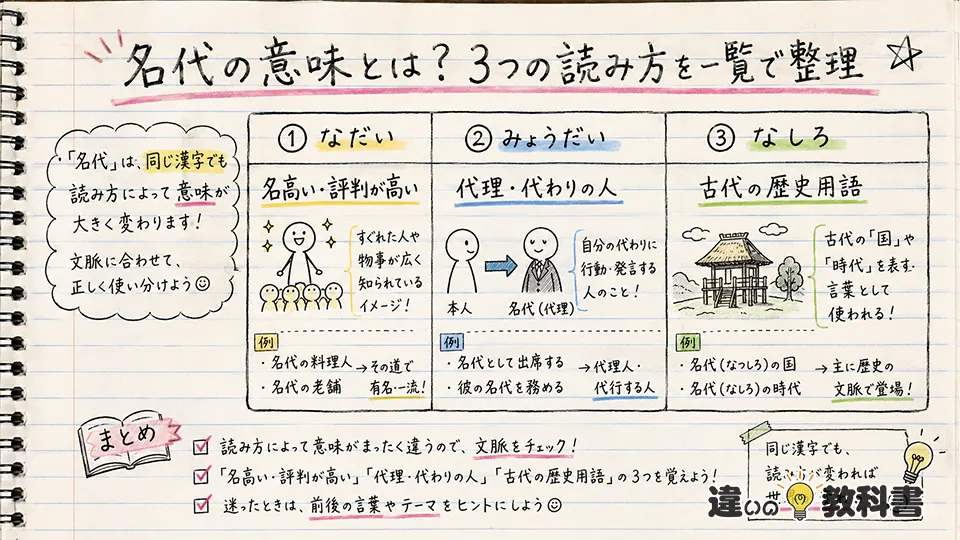 名代の意味とは？3つの読み方を一覧で整理
・「名代」は、同じ漢字でも
読み方によって意味が
大きく変わります！
文脈に合わせて、
正しく使い分けよう☺
① なだい
名高い・評判が高い
すぐれた人や
物事が広く
知られている
イメージ！
例
・名代の料理人
・名代の老舗
→その道で
有名・一流！
② みょうだい
代理・代わりの人
本人
名代（代理）
自分の代わりに
行動・発言する
人のこと！
例
・名代として出席する
・彼の名代を務める
→代理人・
代行する人
③ なしろ
古代の歴史用語
古代の「国」や
「時代」を表す
言葉として
使われる！
例
・名代（なつしろ）の国
・名代（なしろ）の時代
→主に歴史の
文脈で登場！
まとめ
読み方によって意味がまったく違うので、文脈をチェック！
「名高い・評判が高い」「代理・代わりの人」「古代の歴史用語」の3つを覚えよう！
迷ったときは、前後の言葉やテーマをヒントにしよう☺
同じ漢字でも、
読み方が変われば
違いの教科書